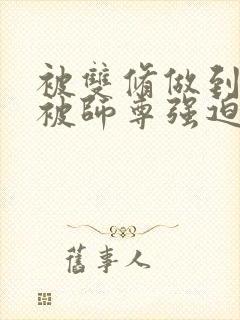 被雙脩做到
被師尊强迫
舊事人